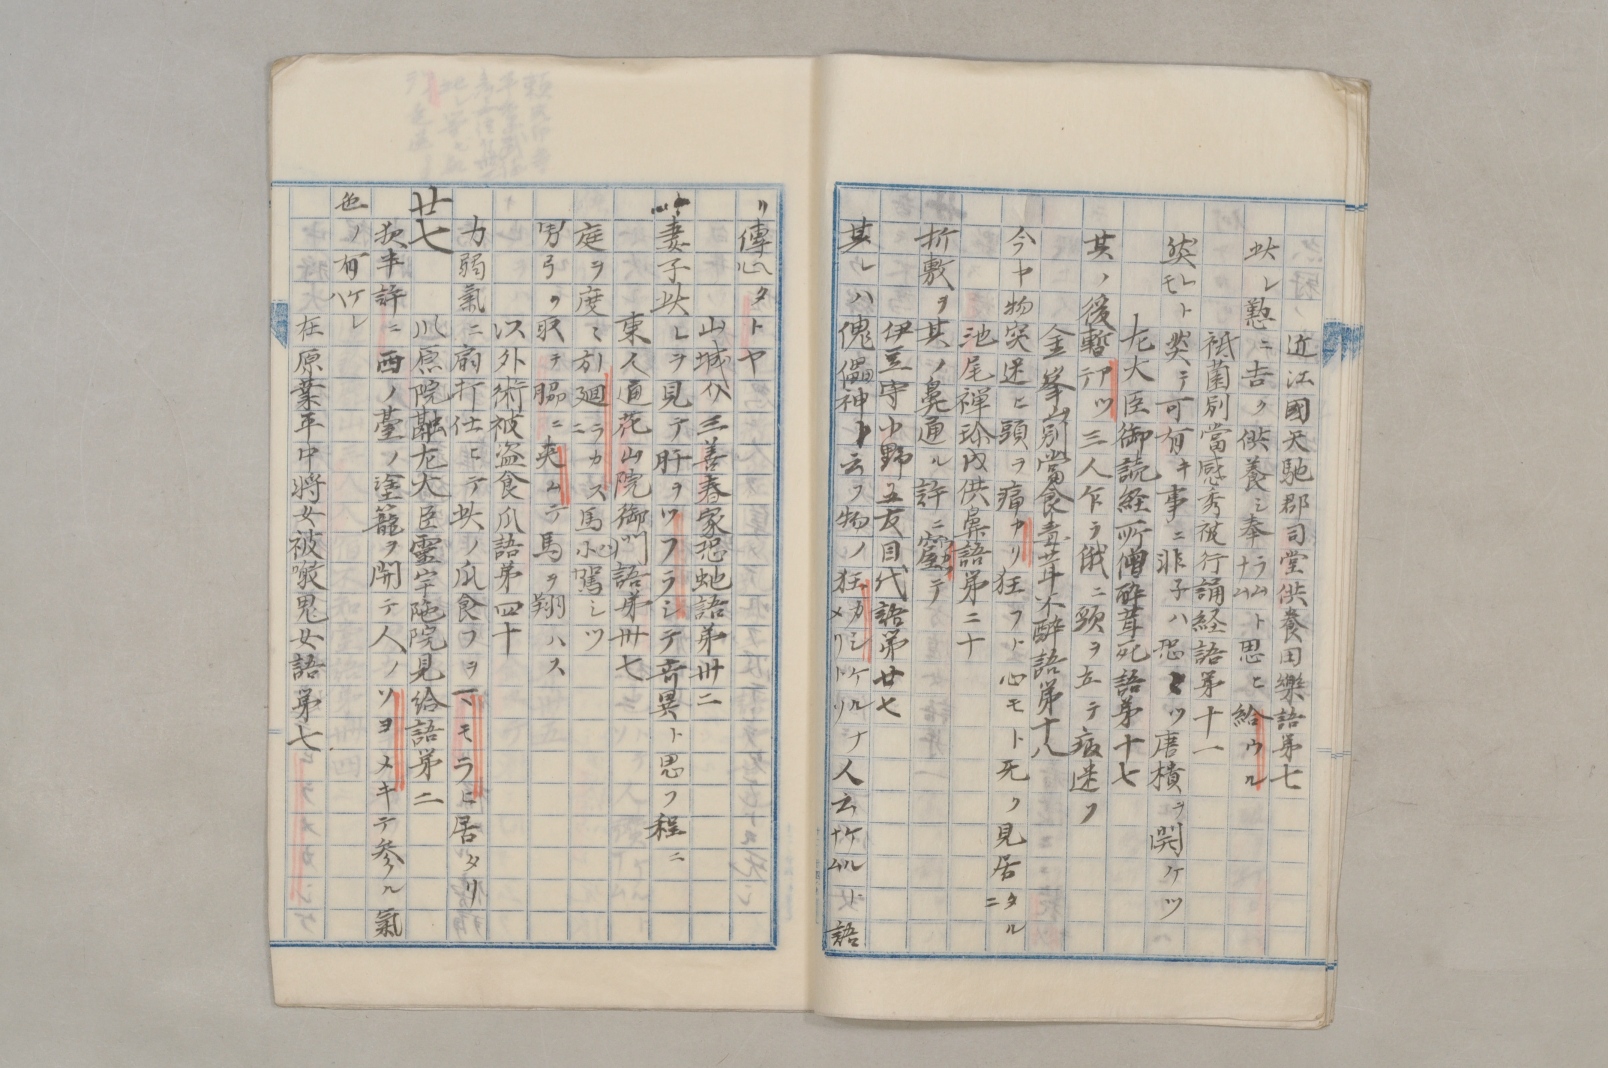 近江國矢馳郡司堂供養田樂語第七
此レ懃ニ吉ク供養シ奉ラムト思ヒ給ウル
祇園別當感秀被行誦経語第十一
然レトモ突テ可有キ事ニ非子ハ恐ミツ唐櫃ヲ開ケツ
左大臣御読経所僧酔茸死語第十七
其ノ後暫テツ三人乍ラ俄ニ頭ヲ立テ病迷フ
金峯山別當食毒茸不酔語第十八
今ヤ物突迷ヒ頭ヲ痛カリ狂フト心モト死ク見居タルニ
池尾禅珍内供鼻語第二十
折敷ヲ其ノ鼻通ル許ニ窟テ
伊豆守小野五友目代語第廿七
其レハ傀儡神ト云フ物ノ狂カシケルナメリトソ人云ケル
語
リ傳ヘタトヤ
山城介三善春家恐虵語第卅二
妻子此レヲ見テ肝ヲツフラシテ奇異ト思フ程ニ
東人通花山院御門語第卅七
庭ヲ度ミ引廻ラカス馬ニ駕シツ
男弓ヲ取テ脇ニ夾ムテ馬ヲ翔ハス
以外術被盗食瓜語第四十
力弱氣ニ扇打仕ヒテ此ノ瓜食フヲマモラヒ居タリ
廿七
川原院融左大臣霊宇陀院見給語第二
夜半許ニ西ノ臺ノ塗籠ヲ開テ人ノソヨメキテ参ル氣
色ノ有ケレハ
在原業平中將女被噉鬼女語第七